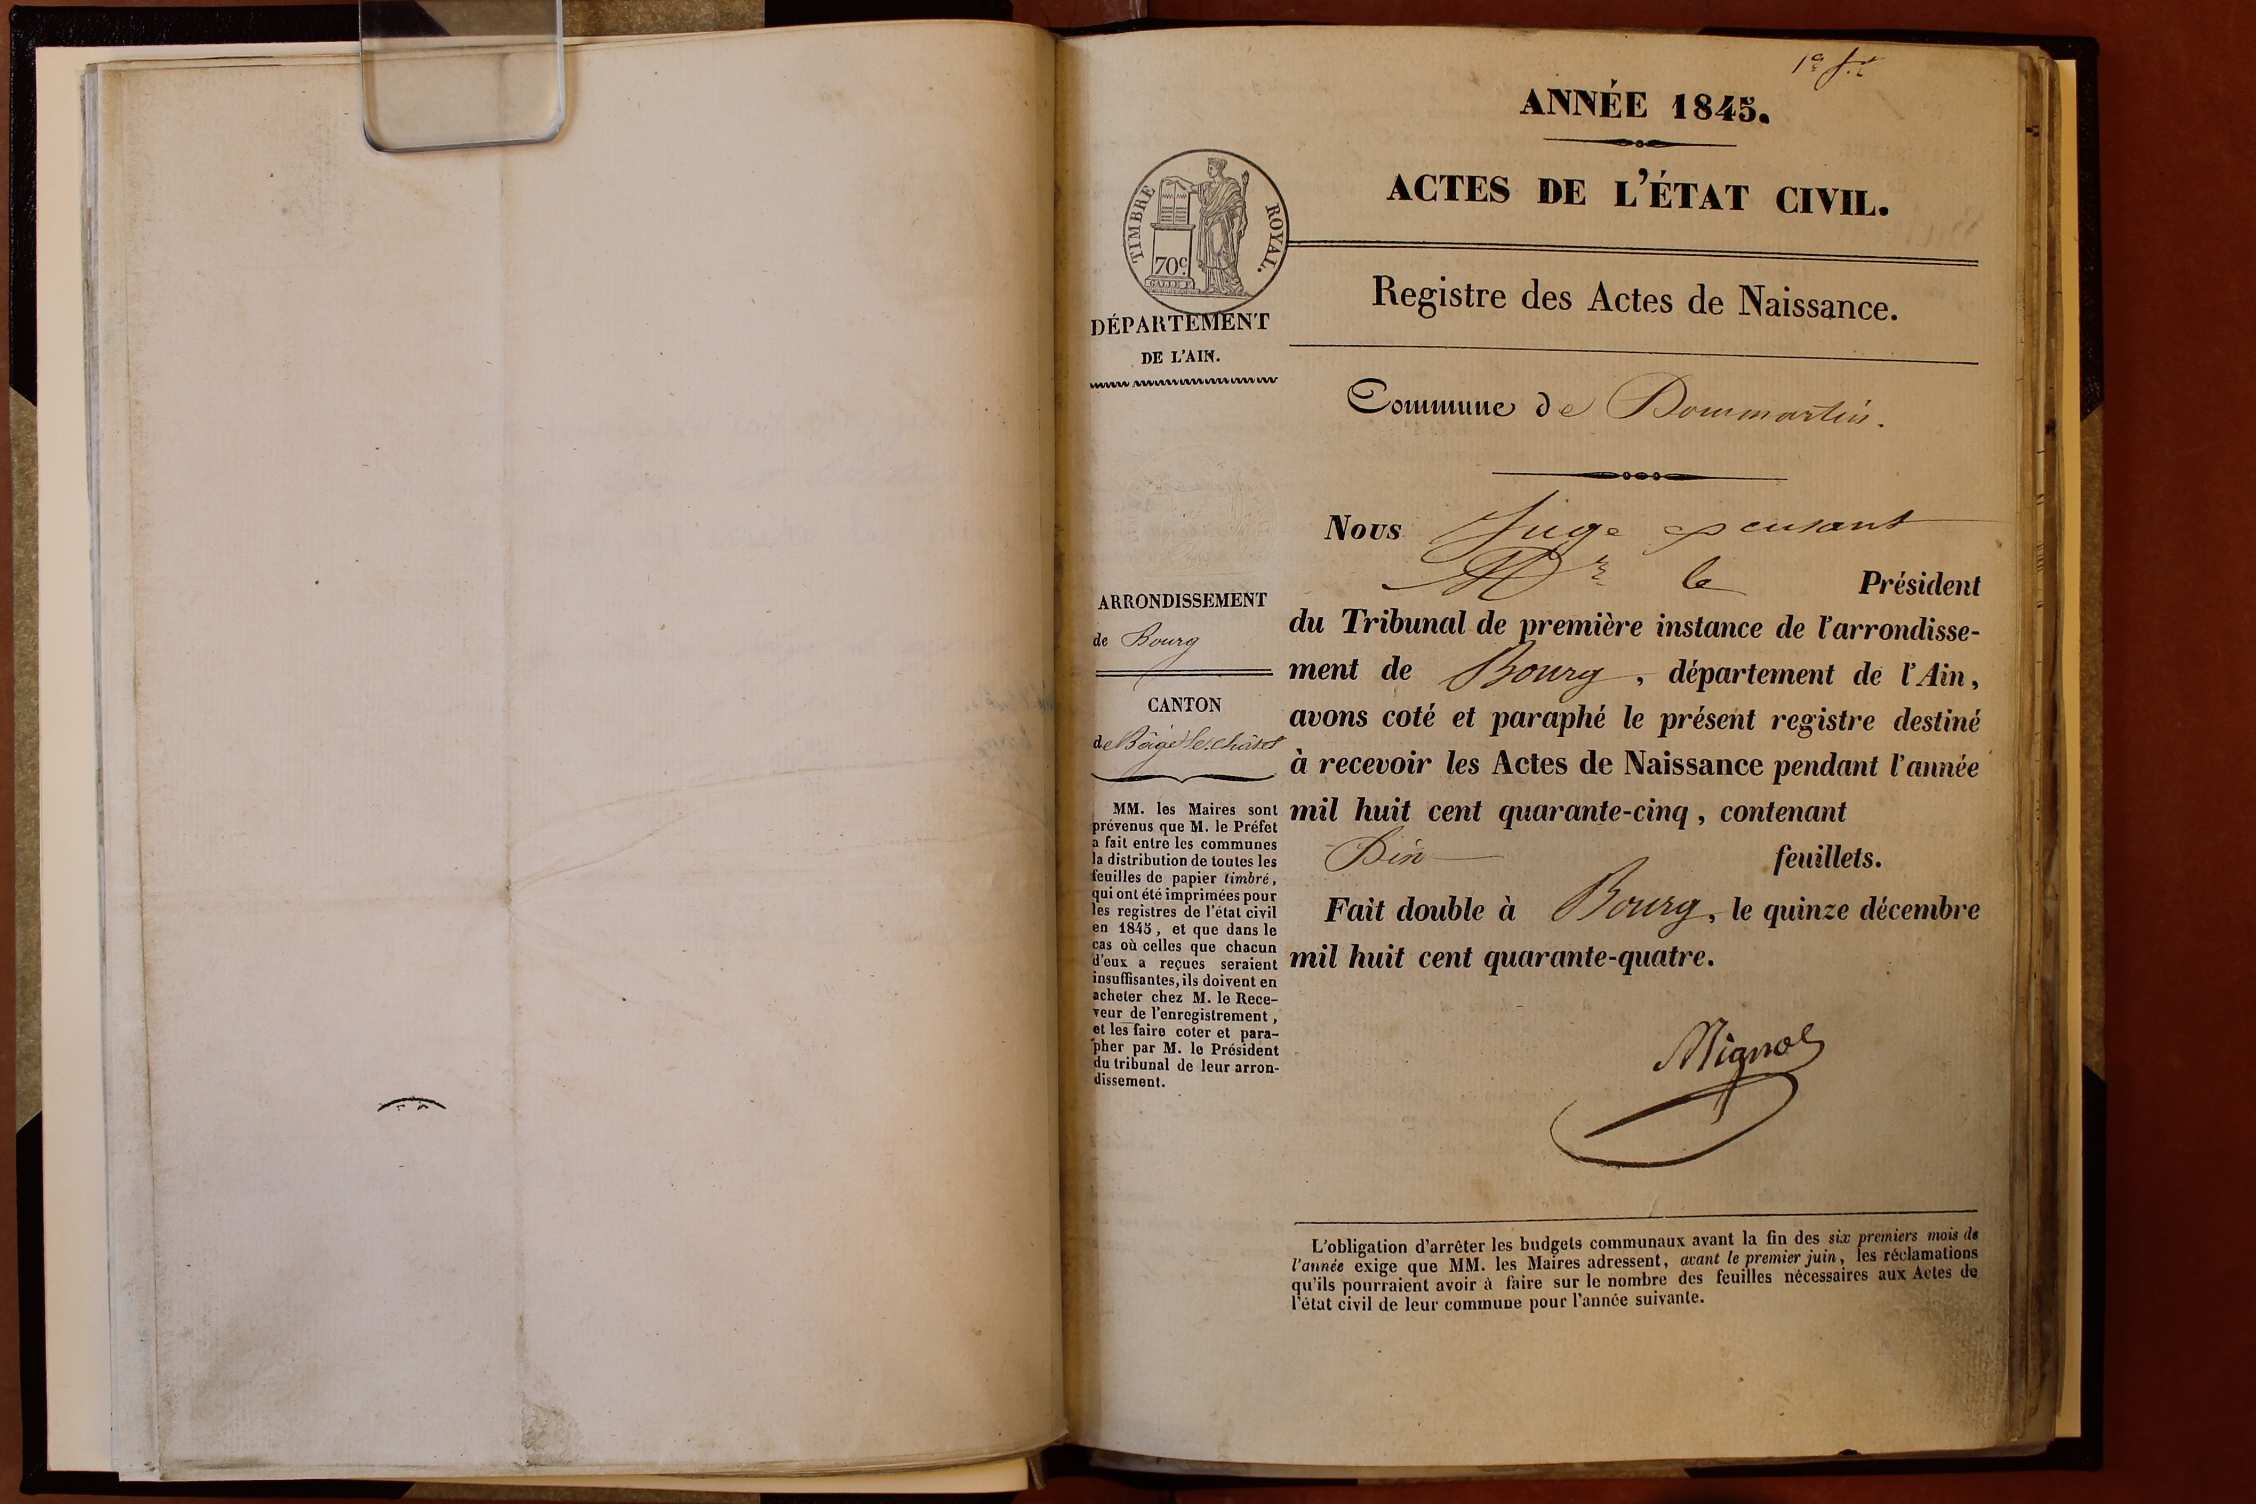 1er f.et
ANNÉE 1845.
ACTES DE L'ÉTAT CIVIL.
TIMBRE ROYAL.
70c.
Registre des Actes de Naissance.
DÉPARTEMENT
DE L'AIN.
Commune de Dommartin.
Nous Juge excusant
Mr le Président
du Tribunal de première instance de l'arrondisse-
ment de Bourg, département de l'Ain,
avons coté et paraphé le présent registre destiné
à recevoir les Actes de Naissance pendant l'année
mil huit cent quarante-cinq, contenant
Dix feuillets.
Fait double à Bourg, le quinze décembre
mil huit cent quarante-quatre.
ARRONDISSEMENT
de Bourg
CANTON
de Bâgé-le-châtel
MM. les Maires sont
prévenus que M. le Préfet
a fait entre les communes
la distribution de toutes les
feuilles de papier timbré,
qui ont été imprimées pour
les registres de l'état civil
en 1845, et que dans le
cas où celles que chacun
d'eux a reçues seraient
insuffisantes, ils doivent en
acheter chez M. le Rece-
veur de l'enregistrement,
et les faire coter et para-
pher par M. le Président
du tribunal de leur arron-
dissement.
L'obligation d'arrêter les budgets communaux avant la fin des six premiers mois de
l'année exige que MM. les Maires adressent, avant le premier juin, les réclamations
qu'ils pourraient avoir à faire sur le nombre des feuilles nécessaires aux Actes de
l'état civil de leur commune pour l'année suivante.